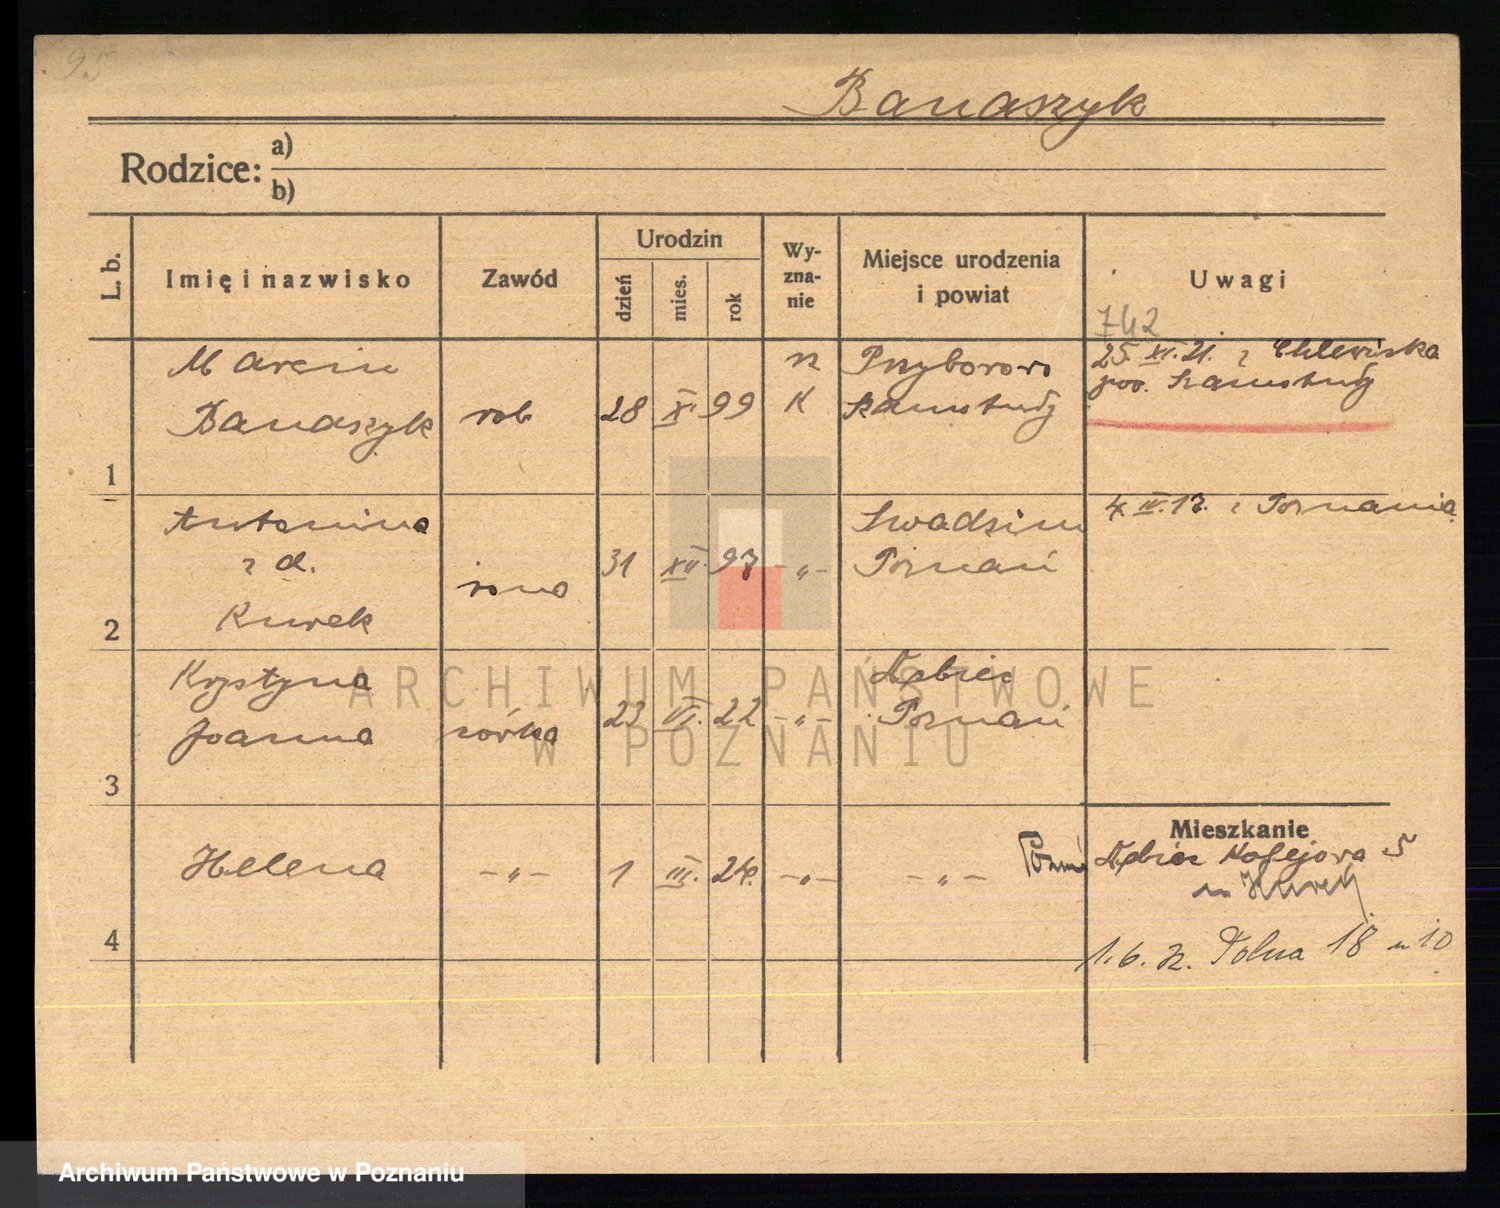 95
Banaszyk
Rodzice: a)
b)
L. b. Imię i nazwisko Zawód Urodzin dzień mies. rok Wyznanie Miejsce urodzenia i powiat Uwagi
742
Marcin Banaszyk rob 28 XI. 99 K Przyborowo Szamotuły 25. XI. 21. z Chlewiska pow. Szamotuły
1
Antonina z d. Kurek żona 31 XII. 97 -„- Swadzim Poznań 4 IV. 12. z Poznania
2
Krystyna Joanna córka 23 VI. 22 -„- Dębiec Poznań
3
Mieszkanie
Helena -„- 1 III. 24. -„- -„- Dębiec Kolejowa 5
Kurek
4
1. 6. Polna 18 m 10
ARCHIWUM PAŃSTWOWE
W POZNANIU
Archiwum Państwowe w Poznaniu